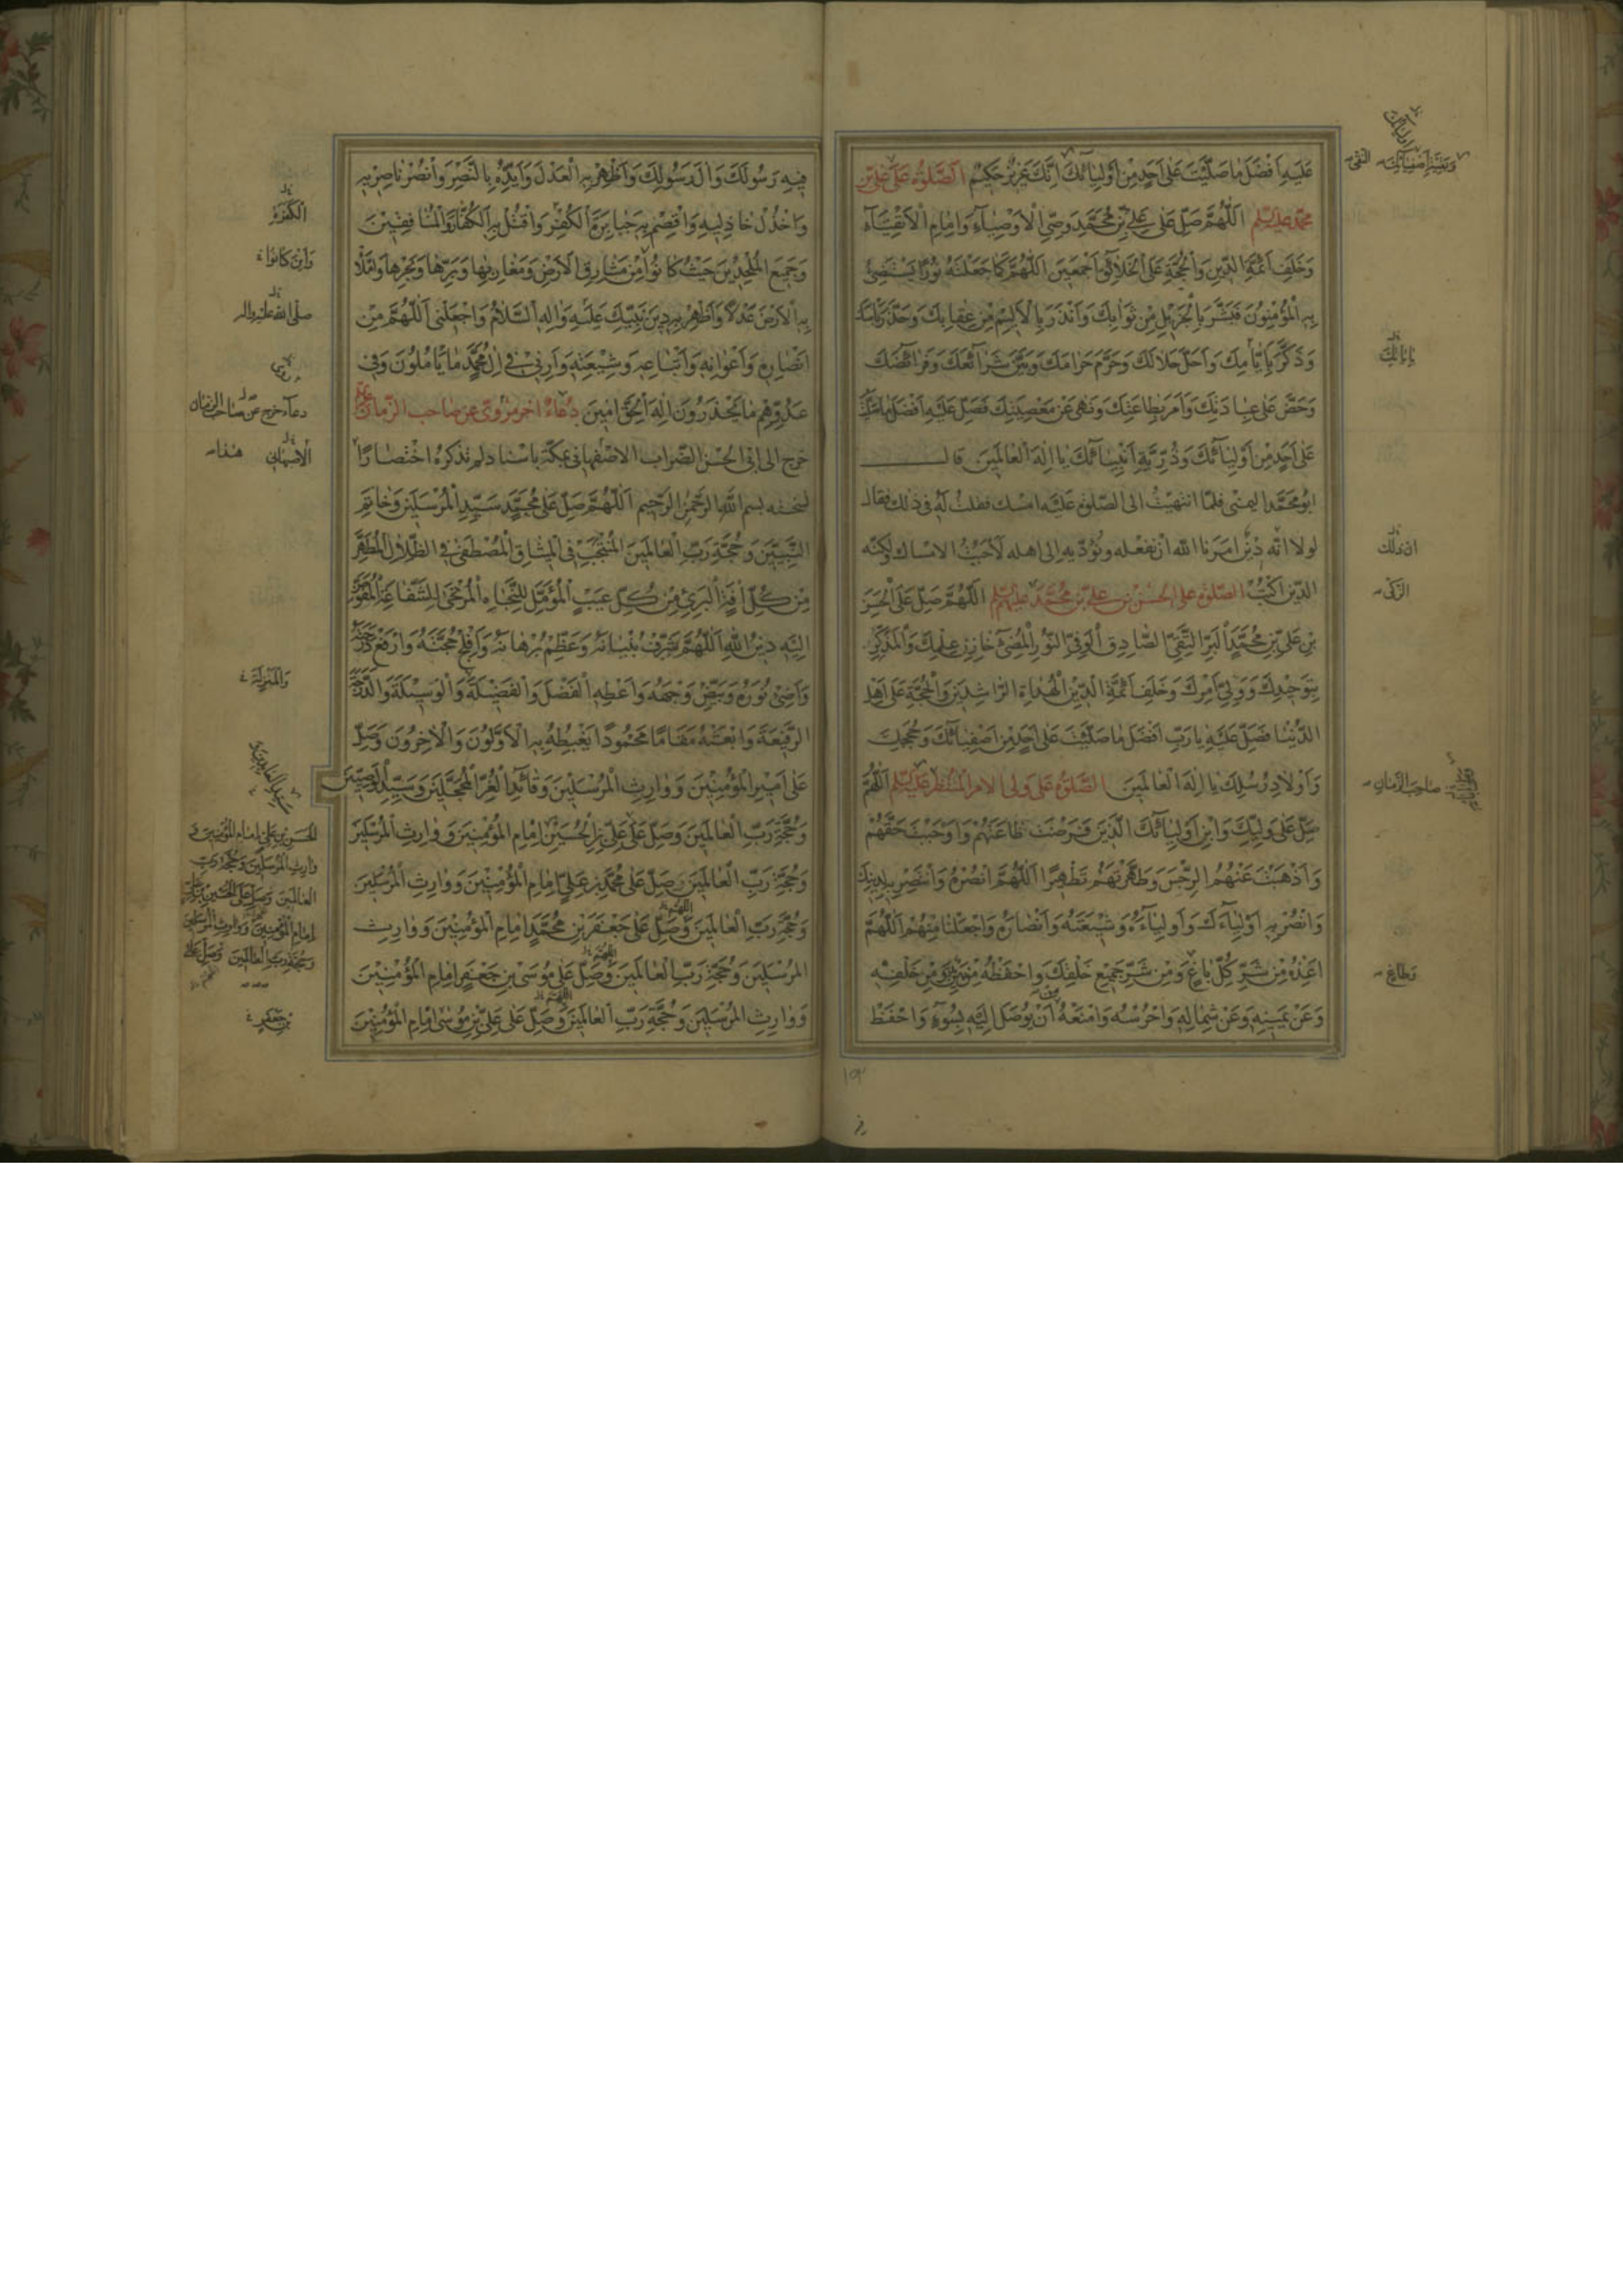 عَلَيْهِ أَفْضَلَ مَا صَلَّيْتَ عَلَى أَحَدٍ مِنْ أَوْلِيَائِكَ إِنَّكَ عَزِيزٌ حَكِيمٌ الصَّلٰوةُ عَلَى عَلِيِّ بْنِ
مُحَمَّدٍ عليه السلم اَللّٰهُمَّ صَلِّ عَلَى عَلِيِّ بْنِ مُحَمَّدٍ وَصِيِّ الْأَوْصِيَاءِ وَإِمَامِ الْأَتْقِيَاءِ
وَخَلَفِ أَئِمَّةِ الدِّينِ وَالْحُجَّةِ عَلَى الْخَلَائِقِ أَجْمَعِينَ اَللّٰهُمَّ كَمَا جَعَلْتَهُ نُورًا يَسْتَضِيءُ
بِهِ الْمُؤْمِنُونَ فَبَشَّرَ بِالْجَزِيلِ مِنْ ثَوَابِكَ وَأَنْذَرَ بِالْأَلِيمِ مِنْ عِقَابِكَ وَحَذَّرَ بَأْسَكَ
وَذَكَّرَ بِأَيَّامِكَ وَأَحَلَّ حَلَالَكَ وَحَرَّمَ حَرَامَكَ وَبَيَّنَ شَرَائِعَكَ وَفَرَائِضَكَ
وَحَضَّ عَلَى عِبَادَتِكَ وَأَمَرَ بِطَاعَتِكَ وَنَهَى عَنْ مَعْصِيَتِكَ فَصَلِّ عَلَيْهِ أَفْضَلَ مَا صَلَّيْتَ
عَلَى أَحَدٍ مِنْ أَوْلِيَائِكَ وَذُرِّيَّةِ أَنْبِيَائِكَ يَا إِلٰهَ الْعَالَمِينَ قال
ابو محمد اليمنى فلمّا انتهيت الى الصّلوة عليه امسك فقلت له فى ذلك فقال
لولا انّه دين امرنا الله ان نفعله ونؤدّيه الى اهله لاحببت الامساك ولكنّه
الدّين اكتب الصلوة على الحسن بن على بن محمد عليهم السلم اَللّٰهُمَّ صَلِّ عَلَى الْحَسَنِ
بْنِ عَلِيِّ بْنِ مُحَمَّدٍ الْبَرِّ التَّقِيِّ الصَّادِقِ الْوَفِيِّ النُّورِ الْمُضِيءِ خَازِنِ عِلْمِكَ وَالْمُذَكِّرِ
بِتَوْحِيدِكَ وَوَلِيِّ أَمْرِكَ وَخَلَفِ أَئِمَّةِ الدِّينِ الْهُدَاةِ الرَّاشِدِينَ وَالْحُجَّةِ عَلَى أَهْلِ
الدُّنْيَا فَصَلِّ عَلَيْهِ يَا رَبِّ أَفْضَلَ مَا صَلَّيْتَ عَلَى أَحَدٍ مِنْ أَصْفِيَائِكَ وَحُجَجِكَ
وَأَوْلَادِ رُسُلِكَ يَا إِلٰهَ الْعَالَمِينَ الصَّلٰوةُ عَلَى وَلِىِّ الامر المنتظر عليه السلم اَللّٰهُمَّ
صَلِّ عَلَى وَلِيِّكَ وَابْنِ أَوْلِيَائِكَ الَّذِينَ فَرَضْتَ طَاعَتَهُمْ وَأَوْجَبْتَ حَقَّهُمْ
وَأَذْهَبْتَ عَنْهُمُ الرِّجْسَ وَطَهَّرْتَهُمْ تَطْهِيرًا اَللّٰهُمَّ انْصُرْهُ وَانْتَصِرْ بِهِ لِدِينِكَ
وَانْصُرْ بِهِ أَوْلِيَاءَكَ وَأَوْلِيَاءَهُ وَشِيعَتَهُ وَأَنْصَارَهُ وَاجْعَلْنَا مِنْهُمْ اَللّٰهُمَّ
أَعِذْهُ مِنْ شَرِّ كُلِّ بَاغٍ وَمِنْ شَرِّ جَمِيعِ خَلْقِكَ وَاحْفَظْهُ مِنْ بَيْنِ يَدَيْهِ وَمِنْ خَلْفِهِ
وَعَنْ يَمِينِهِ وَعَنْ شِمَالِهِ وَاحْرُسْهُ وَامْنَعْهُ أَنْ يُوصَلَ إِلَيْهِ بِسُوءٍ وَاحْفَظْ
وَبَقِيَّةِ أَصْفِيَائِكَ
النقى
بِآيَاتِكَ
ان ذلك
الزكى
صاحب الزمان
وَطَاغٍ
١٥٢
فِيهِ رَسُولَكَ وَآلَ رَسُولِكَ وَأَظْهِرْ بِهِ الْعَدْلَ وَأَيِّدْهُ بِالنَّصْرِ وَانْصُرْ نَاصِرِيهِ
وَاخْذُلْ خَاذِلِيهِ وَاقْصِمْ بِهِ جَبَابِرَةَ الْكُفْرِ وَاقْتُلْ بِهِ الْكُفَّارَ وَالْمُنَافِقِينَ
وَجَمِيعَ الْمُلْحِدِينَ حَيْثُ كَانُوا مِنْ مَشَارِقِ الْأَرْضِ وَمَغَارِبِهَا وَبَرِّهَا وَبَحْرِهَا وَامْلَأْ
بِهِ الْأَرْضَ عَدْلًا وَأَظْهِرْ بِهِ دِينَ نَبِيِّكَ عَلَيْهِ وَآلِهِ السَّلَامُ وَاجْعَلْنِي اَللّٰهُمَّ مِنْ
أَنْصَارِهِ وَأَعْوَانِهِ وَأَتْبَاعِهِ وَشِيعَتِهِ وَأَرِنِي فِي آلِ مُحَمَّدٍ مَا يَأْمُلُونَ وَفِي
عَدُوِّهِمْ مَا يَحْذَرُونَ إِلٰهَ الْحَقِّ آمِينَ دُعَاءٌ آخر مروىّ عن صاحب الزّمان
خرج الى ابى الحسن الضراب الاصفهانى بمكّة باسناد لم نذكره اختصارًا
نسخته بسم الله الرَّحْمٰنِ الرَّحِيمِ اَللّٰهُمَّ صَلِّ عَلَى مُحَمَّدٍ سَيِّدِ الْمُرْسَلِينَ وَخَاتَمِ
النَّبِيِّينَ وَحُجَّةِ رَبِّ الْعَالَمِينَ الْمُنْتَجَبِ فِي الْمِيثَاقِ الْمُصْطَفَى فِي الظِّلَالِ الْمُطَهَّرِ
مِنْ كُلِّ آفَةٍ الْبَرِيءِ مِنْ كُلِّ عَيْبٍ الْمُؤَمَّلِ لِلنَّجَاةِ الْمُرْتَجَى لِلشَّفَاعَةِ الْمُفَوَّضِ
إِلَيْهِ دِينُ اللهِ اَللّٰهُمَّ شَرِّفْ بُنْيَانَهُ وَعَظِّمْ بُرْهَانَهُ وَأَفْلِجْ حُجَّتَهُ وَارْفَعْ دَرَجَتَهُ
وَأَضِئْ نُورَهُ وَبَيِّضْ وَجْهَهُ وَأَعْطِهِ الْفَضْلَ وَالْفَضِيلَةَ وَالْوَسِيلَةَ وَالدَّرَجَةَ
الرَّفِيعَةَ وَابْعَثْهُ مَقَامًا مَحْمُودًا يَغْبِطُهُ بِهِ الْأَوَّلُونَ وَالْآخِرُونَ وَصَلِّ
عَلَى أَمِيرِ الْمُؤْمِنِينَ وَوَارِثِ الْمُرْسَلِينَ وَقَائِدِ الْغُرِّ الْمُحَجَّلِينَ وَسَيِّدِ الْوَصِيِّينَ
وَحُجَّةِ رَبِّ الْعَالَمِينَ وَصَلِّ عَلَى عَلِيِّ بْنِ الْحُسَيْنِ إِمَامِ الْمُؤْمِنِينَ وَوَارِثِ الْمُرْسَلِينَ
وَحُجَّةِ رَبِّ الْعَالَمِينَ وَصَلِّ عَلَى مُحَمَّدِ بْنِ عَلِيٍّ إِمَامِ الْمُؤْمِنِينَ وَوَارِثِ الْمُرْسَلِينَ
وَحُجَّةِ رَبِّ الْعَالَمِينَ وَصَلِّ عَلَى جَعْفَرِ بْنِ مُحَمَّدٍ إِمَامِ الْمُؤْمِنِينَ وَوَارِثِ
الْمُرْسَلِينَ وَحُجَّةِ رَبِّ الْعَالَمِينَ وَصَلِّ عَلَى مُوسَى بْنِ جَعْفَرٍ إِمَامِ الْمُؤْمِنِينَ
وَوَارِثِ الْمُرْسَلِينَ وَحُجَّةِ رَبِّ الْعَالَمِينَ وَصَلِّ عَلَى عَلِيِّ بْنِ مُوسَى إِمَامِ الْمُؤْمِنِينَ
الْكَفَرَةِ
وَأَيْنَ كَانُوا
صلى الله عليه واله
روى
دعاء خرج عن صاحب الزمان
الاصبهانى هذا
وَالْمَنْزِلَةَ
سيد العابدين
الحسن بن على امام المؤمنين و
وارث المرسلين وحجة رب
العالمين وصل على الحسين بن على
امام المؤمنين ووارث المرسلين
وحجة رب العالمين وصل على
بن جعفر